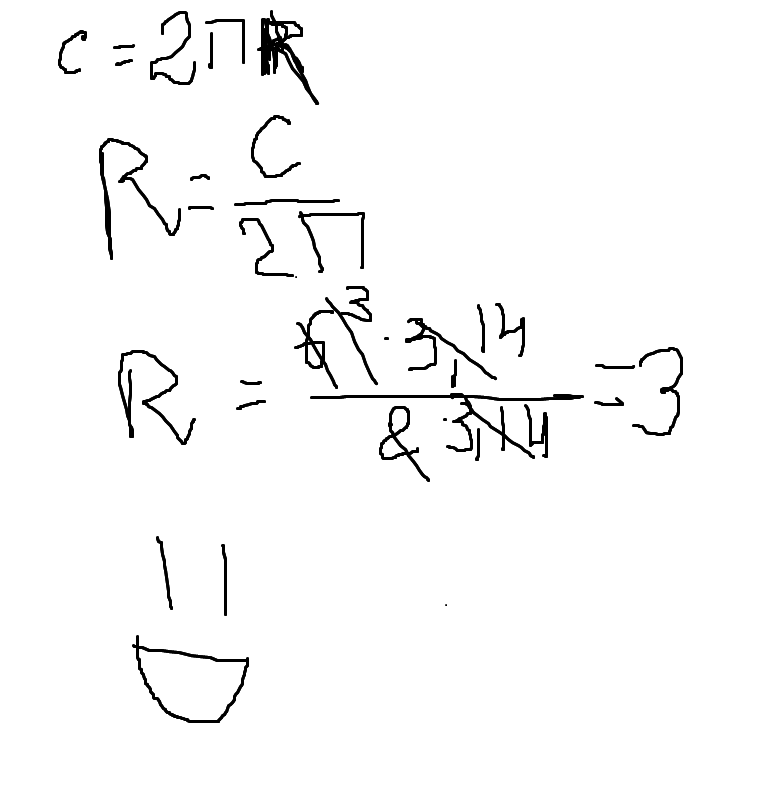 C = 2πR
R = C / 2π
R = 6 3 · 3,14 / 2 · 3,14 = 3